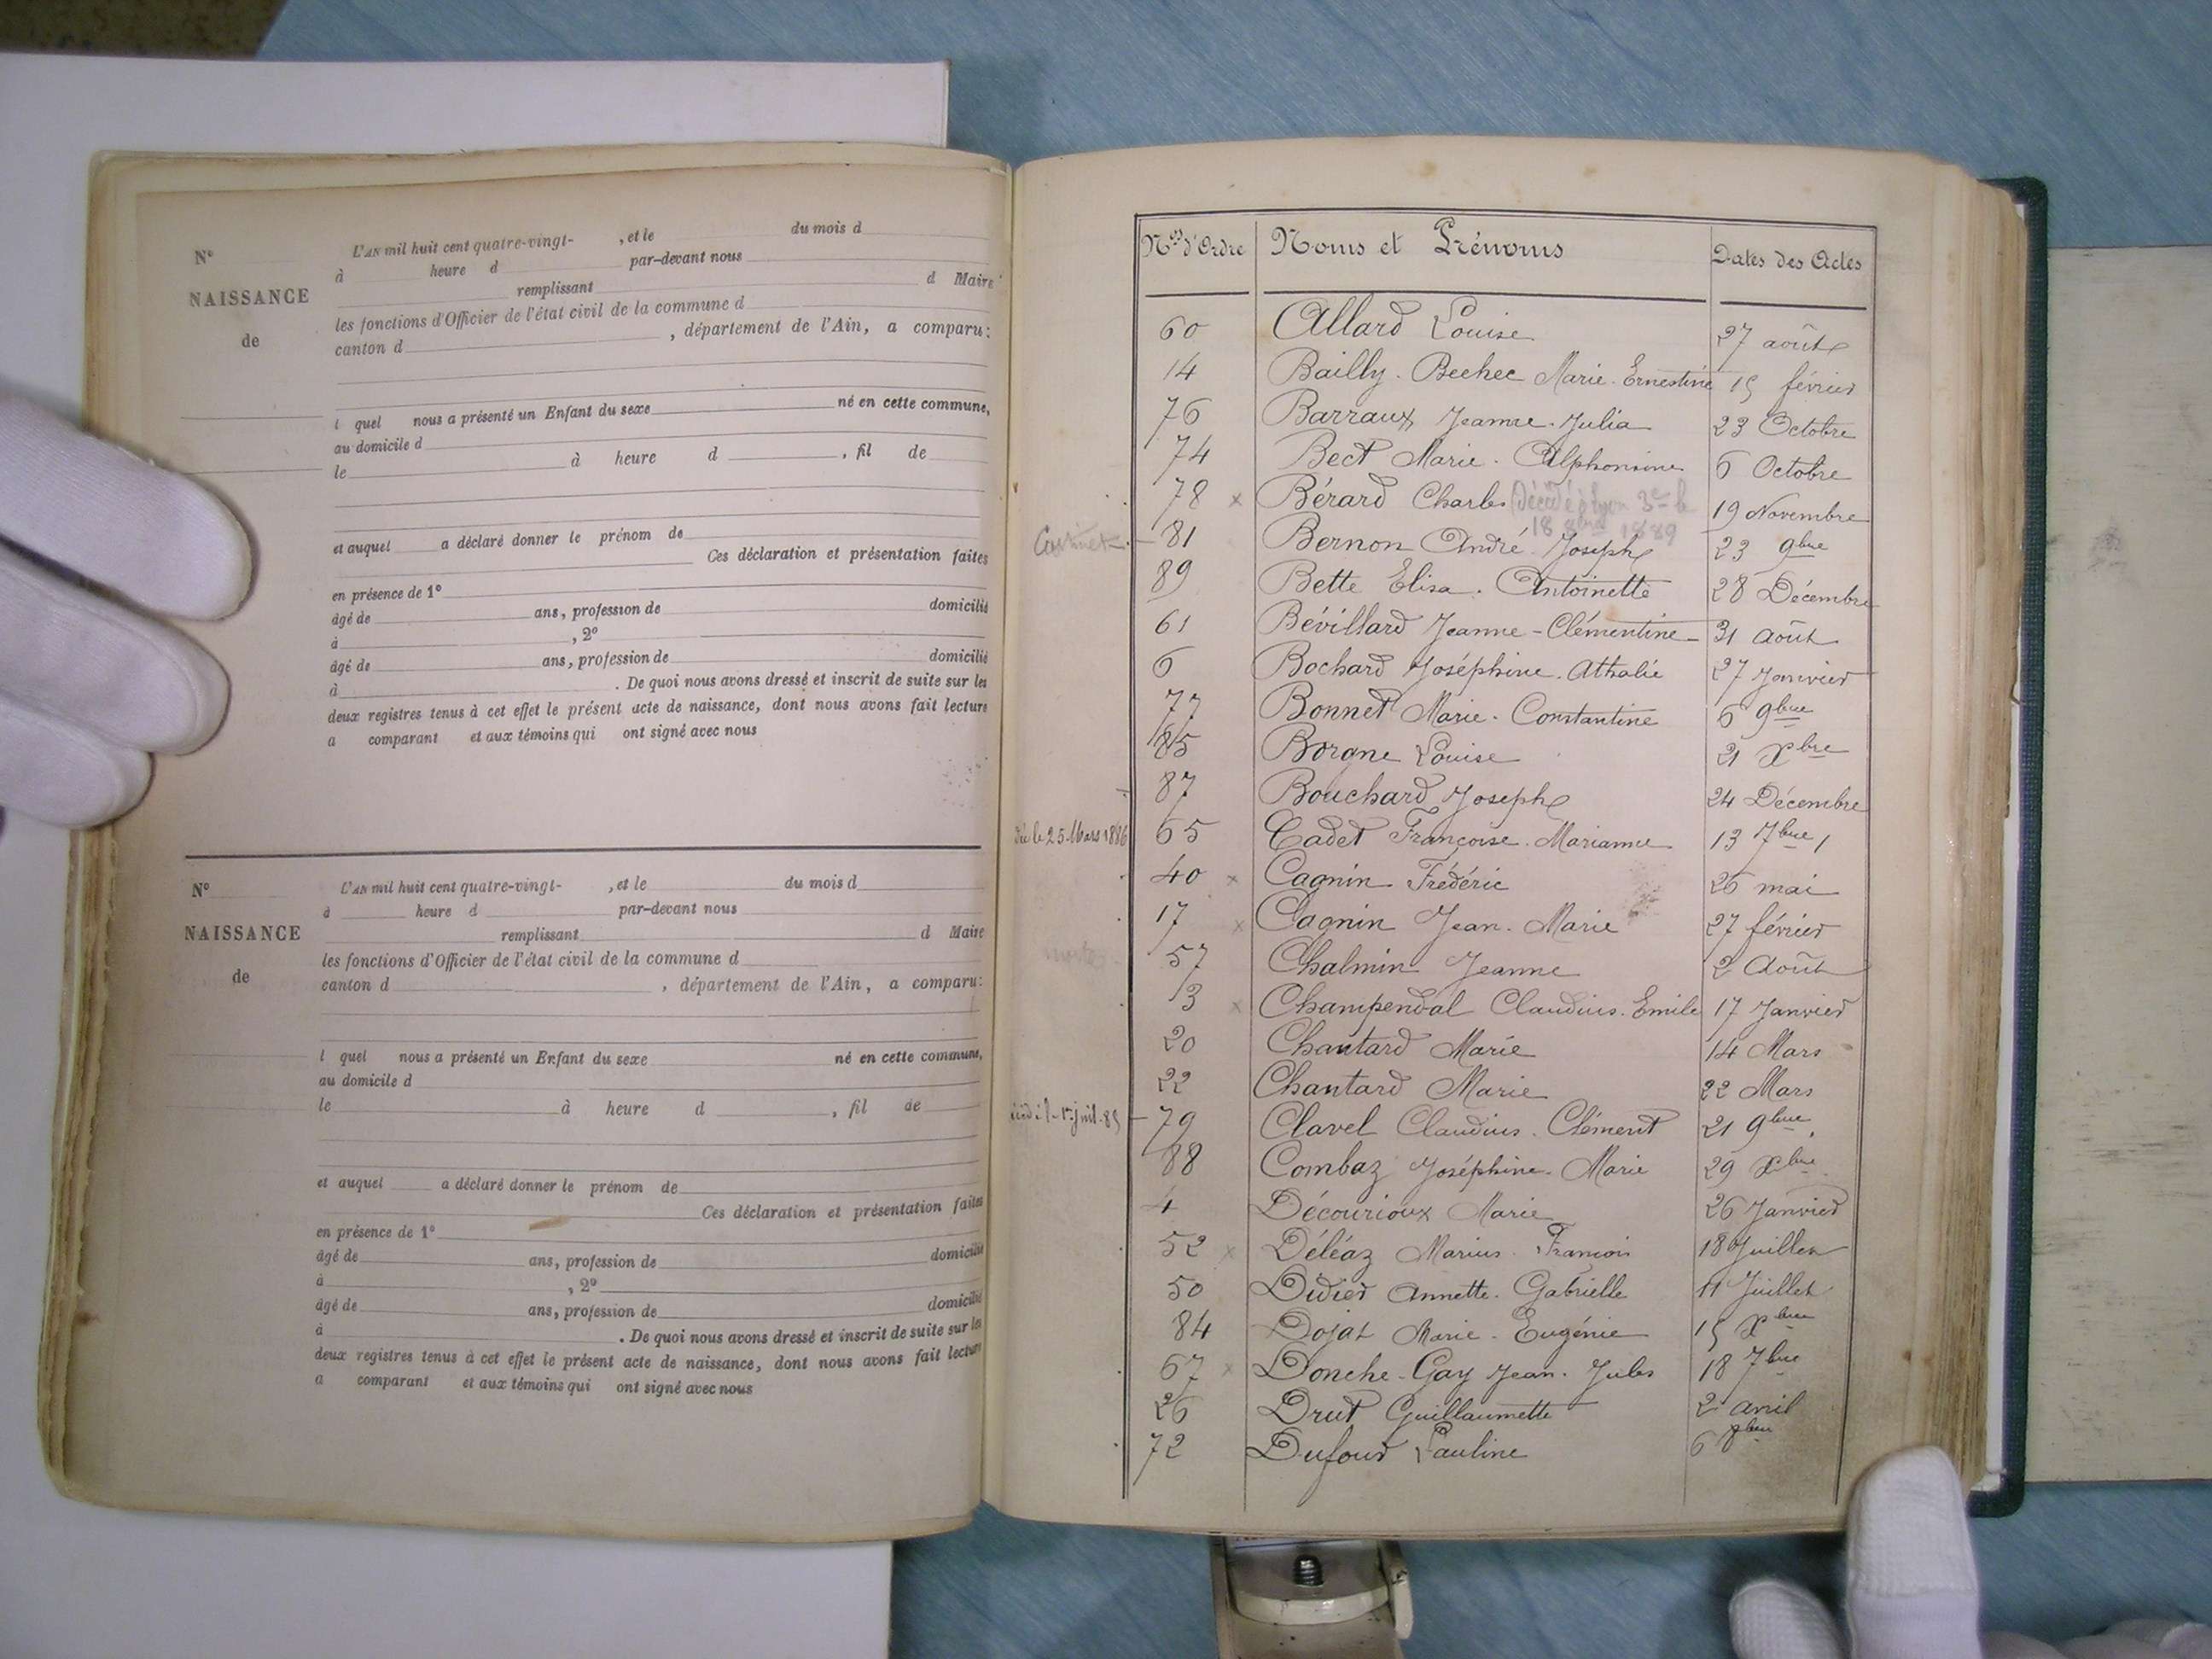 N°
NAISSANCE
de
L'AN mil huit cent quatre-vingt- , et le du mois d
à heure d par-devant nous
remplissant d Maire
les fonctions d'Officier de l'état civil de la commune d
canton d , département de l'Ain, a comparu:
l quel nous a présenté un Enfant du sexe né en cette commune,
au domicile d
le à heure d , fil de
et auquel a déclaré donner le prénom de
Ces déclaration et présentation faites
en présence de 1°
âgé de ans, profession de domicilié
à , 2°
âgé de ans, profession de domicilié
à . De quoi nous avons dressé et inscrit de suite sur les
deux registres tenus à cet effet le présent acte de naissance, dont nous avons fait lecture
a comparant et aux témoins qui ont signé avec nous
N°
NAISSANCE
de
L'AN mil huit cent quatre-vingt- , et le du mois d
à heure d par-devant nous
remplissant d Maire
les fonctions d'Officier de l'état civil de la commune d
canton d , département de l'Ain, a comparu:
l quel nous a présenté un Enfant du sexe né en cette commune,
au domicile d
le à heure d , fil de
et auquel a déclaré donner le prénom de
Ces déclaration et présentation faites
en présence de 1°
âgé de ans, profession de domicilié
à , 2°
âgé de ans, profession de domicilié
à . De quoi nous avons dressé et inscrit de suite sur les
deux registres tenus à cet effet le présent acte de naissance, dont nous avons fait lecture
a comparant et aux témoins qui ont signé avec nous
Nos d'Ordre Noms et Prénoms Dates des Actes
60 Allard Louise 27 août
14 Bailly-Bechec Marie-Ernestine 15 février
76 Barraux Jeanne-Julia 23 Octobre
74 Bect Marie-Alphonsine 6 Octobre
78 x Bérard Charles Décédé à Lyon 3e le 19 Novembre
18 8bre 1889
81 Bernon André-Joseph 23 9bre
89 Bette Elisa-Antoinette 28 Décembre
61 Bévillard Jeanne-Clémentine 31 août
6 Bochard Joséphine-Athalie 27 Janvier
77 Bonnet Marie-Constantine 6 9bre
85 Borgne Louise 21 Xbre
87 Bouchard Joseph 24 Décembre
le 25 Mars 1886 65 Cadet Françoise-Marianne 13 7bre
40 x Cagnin Frédéric 26 mai
17 x Cagnin Jean-Marie 27 février
57 Chalmin Jeanne 2 Août
3 x Champendal Claudius-Emile 17 Janvier
20 Chantard Marie 14 Mars
22 Chantard Marie 22 Mars
79 Clavel Claudius-Clément 21 9bre
88 Combaz Joséphine-Marie 29 Xbre
4 Décourioux Marie 26 Janvier
52 x Déléaz Marius-François 18 Juillet
50 Didier Annette-Gabrielle 11 Juillet
84 Dojat Marie-Eugénie 15 Xbre
67 x Donche-Gay Jean-Jules 18 7bre
26 Drut Guillaumette 2 avril
72 Dufour Pauline 6 8bre